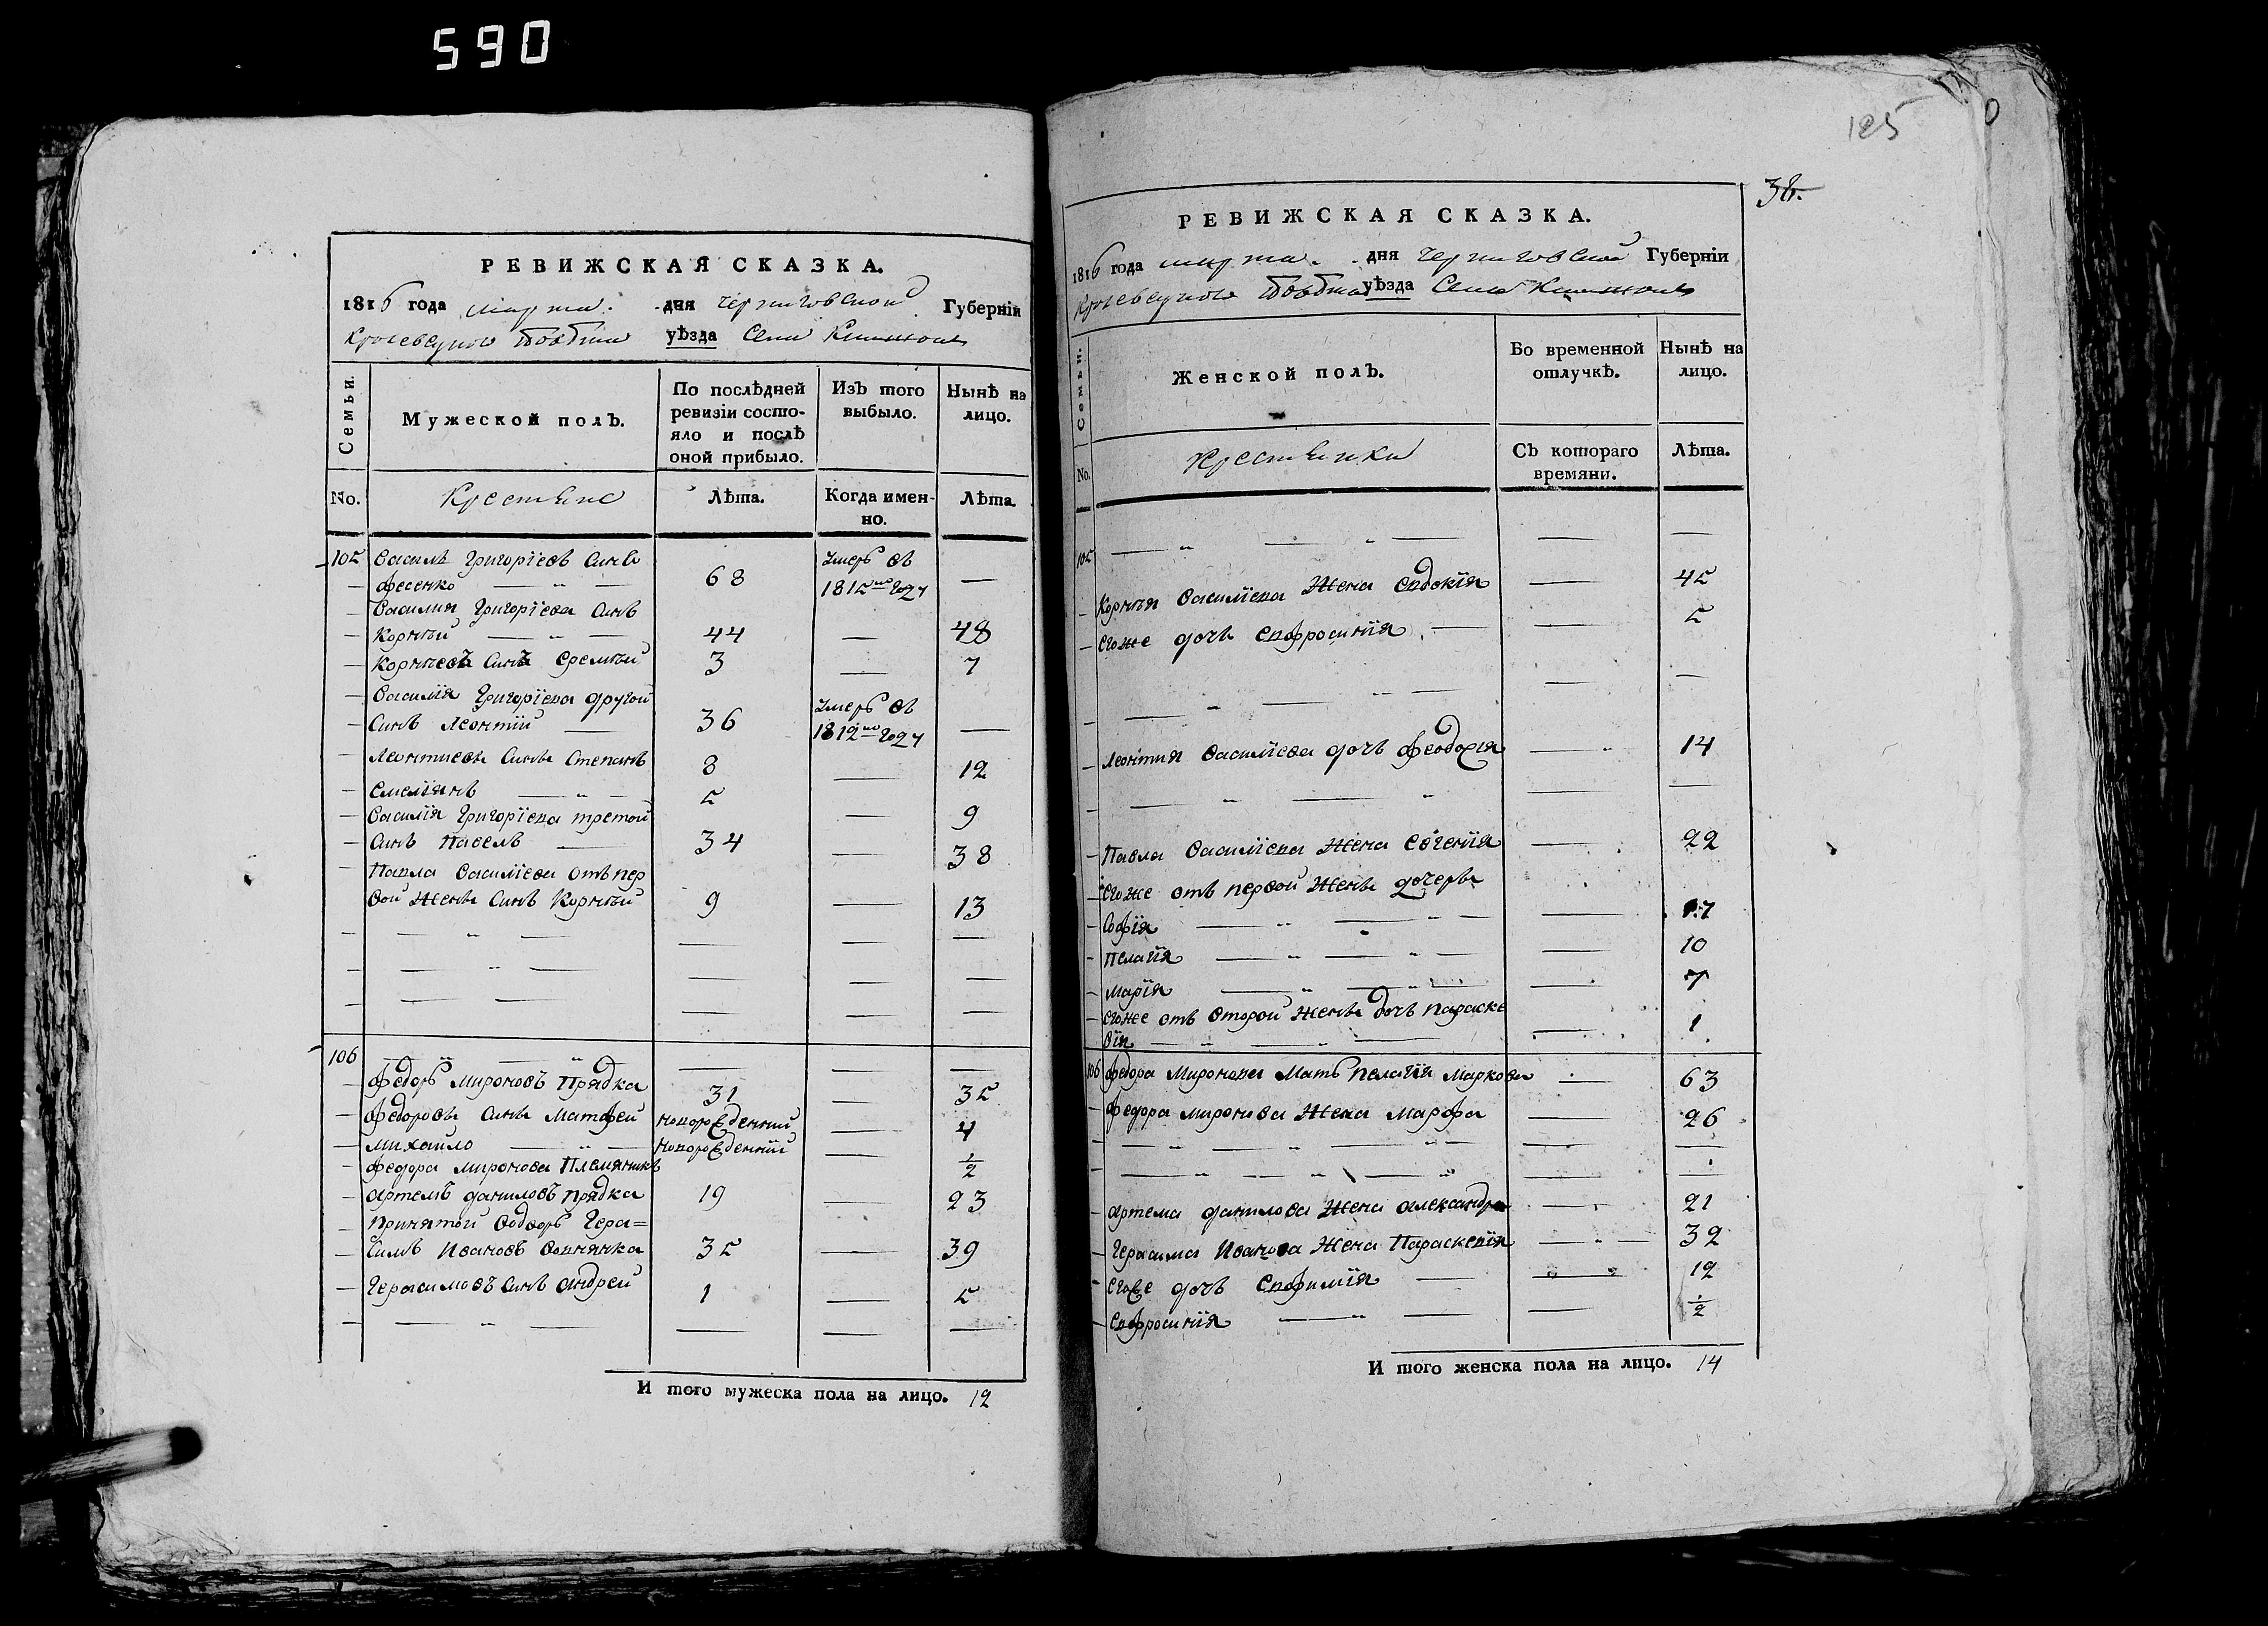 590
РЕВИЖСКАЯ СКАЗКА.
1816 года марта. дня Черниговской Губерніи
Кролевецкого Повѣта уѣзда Села
Семьи.
Мужеской полъ.
По послѣдней
ревизіи состо-
яло и послѣ
оной прибыло.
Изъ того
выбыло.
Нынѣ на
лицо.
No.
Крестьяне
Лѣта.
Когда имен-
но.
Лѣта.
105 Василь Григорїевъ Синъ умеръ въ
Фесенко 68 1815го году
Василия Григорїева Синъ
Корнѣй 44 48
Корнѣевъ Синъ Еремѣй 3 7
Василїя Григорїева другой умеръ въ
Синъ Леонтїй 36 1812го году
Леонтиевъ Синъ Степанъ 8 12
Емелїянъ 5 9
Василїя Григорїева третой
Синъ Павелъ 34 38
Павла Василїева отъ пер
вой жены Синъ Корнѣй 9 13
106
Федоръ Мироновъ Прядка 31 35
Федоровъ Синъ Матфей новорожденний 4
Михайло новорожденний 1/2
Федора Миронова Племянникъ
Артемъ Даниловъ Прядка 19 23
Принятой водворъ Гера=
симъ Ивановъ Вовнянка 35 39
Герасимовъ Синъ Андрей 1 5
И того мужеска пола на лицо. 12
125
38.
РЕВИЖСКАЯ СКАЗКА.
1816 года марта. дня Черниговской Губерніи
Кролевецкого Повѣта уѣзда Села
Семьи.
Женской полъ.
Во временной
отлучкѣ.
Нынѣ на
лицо.
No.
Крестьянки
Съ котораго
времяни.
Лѣта.
105
Корнѣя Василїева Жена Евдокїя 45
Егоже дочь Евфросинїя 5
Леонтия Василїева дочь Феодосїя 14
Павла Василїева Жена Евгенїя 22
Егоже отъ первой Жены дочеры
Софїя 17
Пелагїя 10
Марїя 7
Егоже отъ второй Жены дочъ Параске
вїя 1
106 Федора Миронова Мать Пелагїя Маркова 63
Федора Миронова Жена Марфа 26
Артема Данилова Жена Александра 21
Герасима Иванова Жена Параскевїя 32
Егоже дочъ Евфимїя 12
Евфросинїя 1/2
И того женска пола на лицо. 14